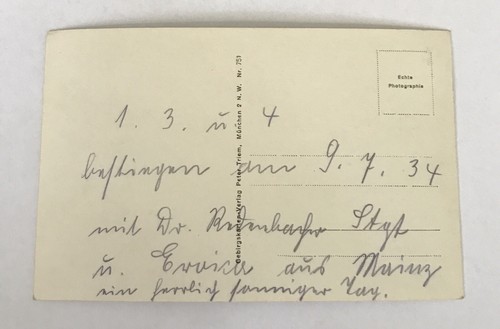 Echte
Photographie
Gebirgskarten-Verlag Peter Triem, München 2 N.W. Nr. 751
1. 3. u 4
bestiegen am 9. 7. 34
mit Dr. Stgt
u. Eroica aus Mainz
ein herrlich sonniger Tag.